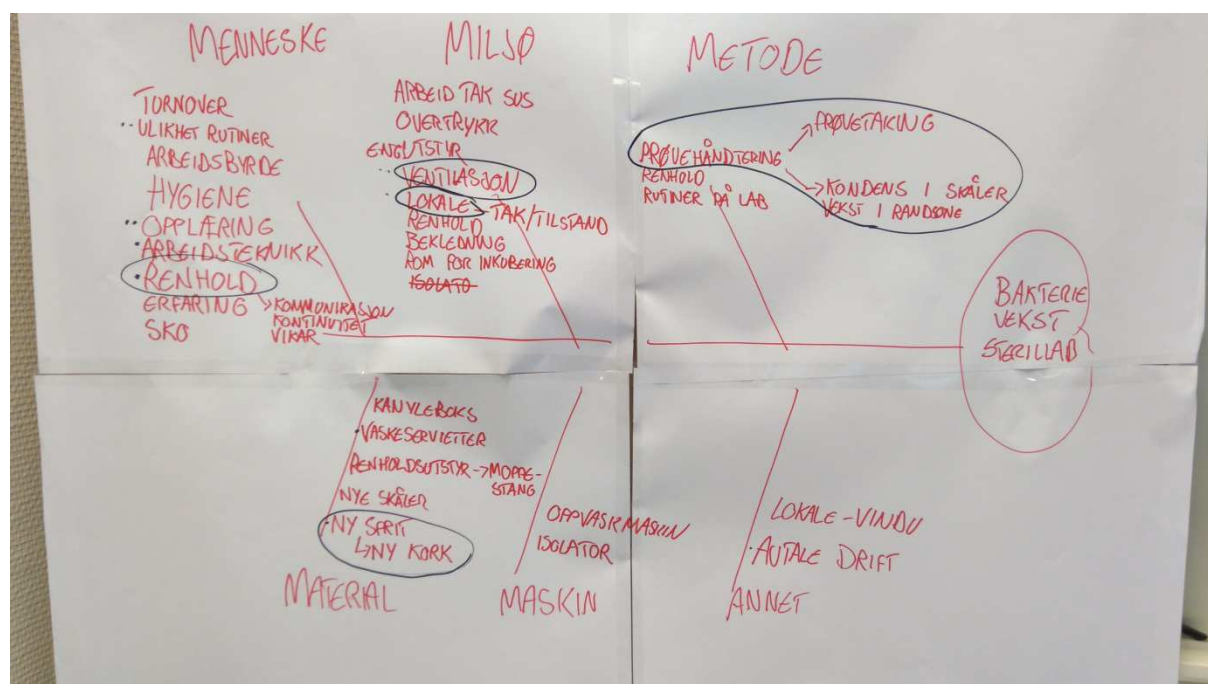 MENNESKE
TURNOVER
ULIKHET RUTINER
ARBEIDSBYRDE
HYGIENE
OPPLÆRING
ARBEIDSTEKNIKK
RENHOLD
ERFARING → KOMMUNIKASJON
KONTINUITET
SKO
VIKAR
MILJØ
ARBEID TAK SUS
OVERTRYKK
ENGUTSTYR
VENTILASJON
LOKALE → TAK/TILSTAND
RENHOLD
BEKLEDNING
ROM FOR INKUBERING
ISOLATO
METODE
PRØVEHÅNDTERING
→ PRØVETAKING
→ KONDENS I SKÅLER
VEKST I RANDSONE
RENHOLD
RUTINER PÅ LAB
BAKTERIE
VEKST
STERILLAB
KANYLEBOKS
VASKESERVIETTER
RENHOLDSUTSTYR → MOPPE-
STANG
NYE SKÅLER
NY SPRIT
↳ NY KORK
MATERIAL
OPPVASKMASKIN
ISOLATOR
MASKIN
LOKALE - VINDU
AVTALE DRIFT
ANNET